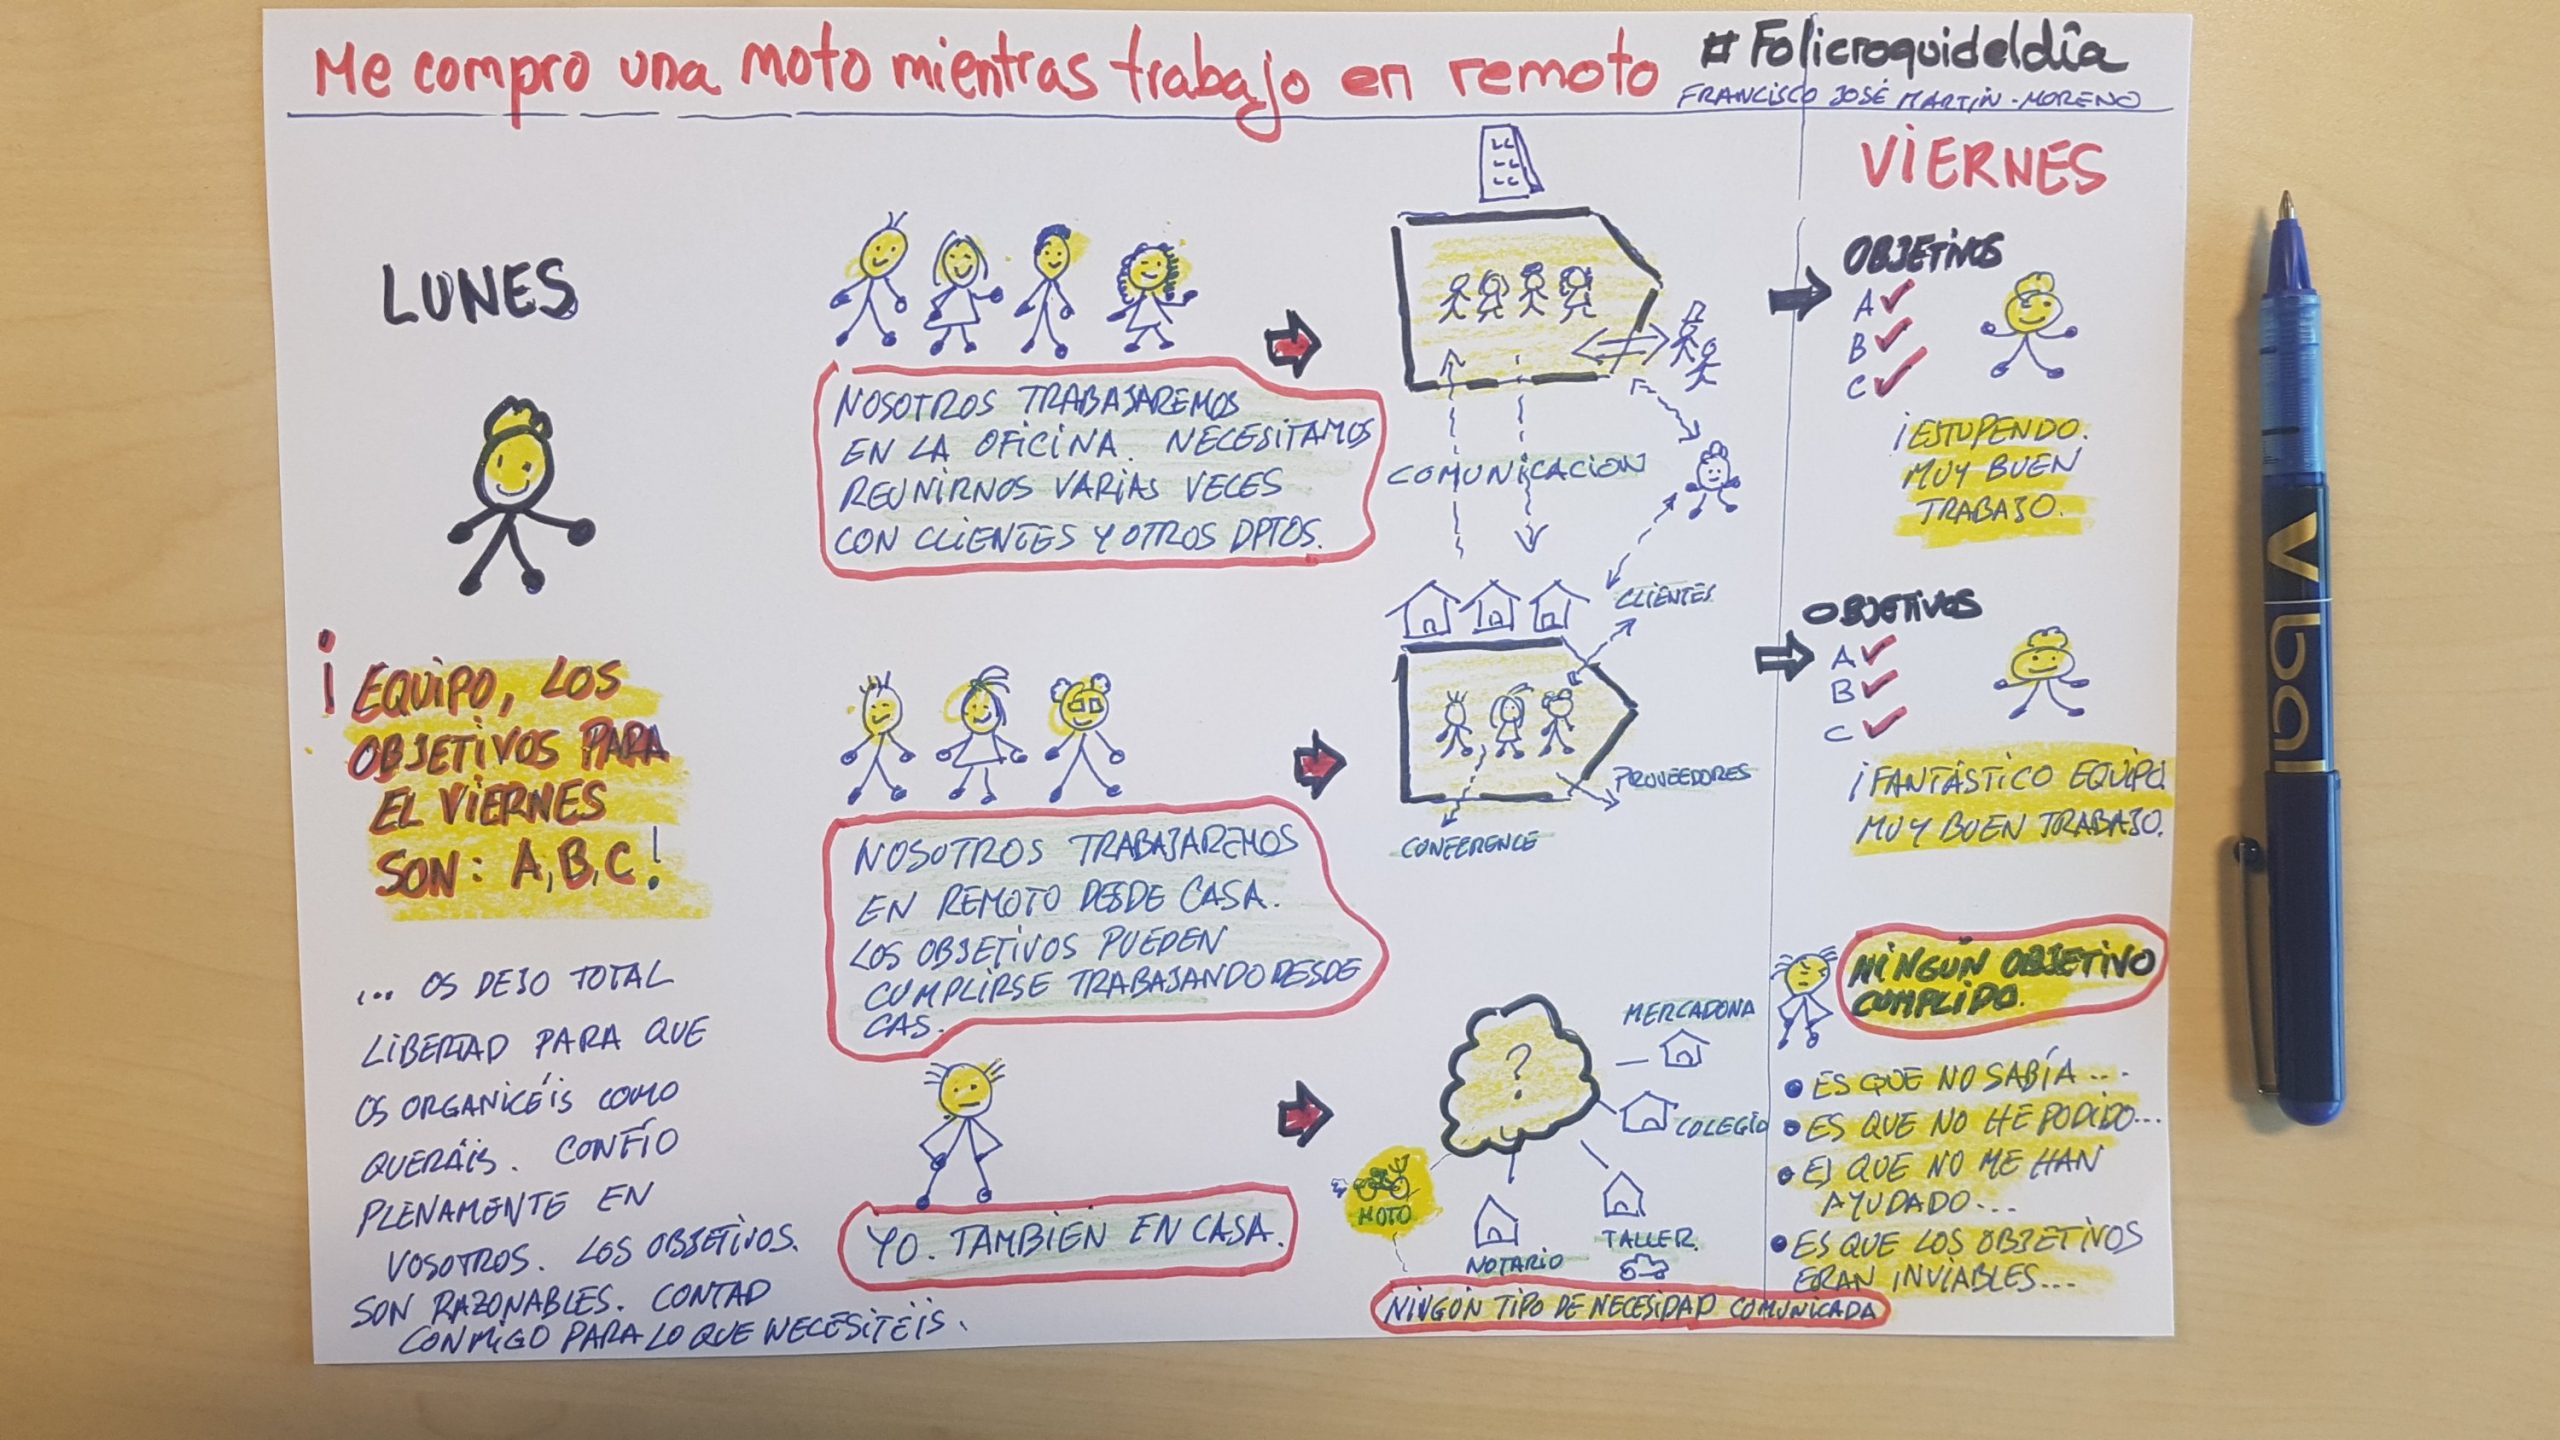 Me compro una moto mientras trabajo en remoto
#Folicroquideldía
FRANCISCO JOSÉ MARTÍN-MORENO
LUNES
¡EQUIPO, LOS
OBJETIVOS PARA
EL VIERNES
SON: A, B, C!
... OS DEJO TOTAL
LIBERTAD PARA QUE
OS ORGANICÉIS COMO
QUERÁIS. CONFÍO
PLENAMENTE EN
VOSOTROS. LOS OBJETIVOS.
SON RAZONABLES. CONTAD
CONMIGO PARA LO QUE NECESITÉIS.
NOSOTROS TRABAJAREMOS
EN LA OFICINA. NECESITAMOS
REUNIRNOS VARIAS VECES
CON CLIENTES Y OTROS DPTOS.
COMUNICACION
VIERNES
OBJETIVOS
A ✓
B ✓
C ✓
¡ESTUPENDO.
MUY BUEN
TRABAJO.
NOSOTROS TRABAJAREMOS
EN REMOTO DESDE CASA.
LOS OBJETIVOS PUEDEN
CUMPLIRSE TRABAJANDO DESDE
CAS.
CLIENTES
PROVEEDORES
CONFERENCE
OBJETIVOS
A ✓
B ✓
C ✓
¡FANTÁSTICO EQUIPO.
MUY BUEN TRABAJO.
YO. TAMBIÉN EN CASA.
?
MERCADONA
COLEGIO
TALLER.
NOTARIO
MOTO
NINGÚN TIPO DE NECESIDAD COMUNICADA
NINGÚN OBJETIVO
CUMPLIDO.
• ES QUE NO SABÍA...
• ES QUE NO HE PODIDO...
• ES QUE NO ME HAN
AYUDADO...
• ES QUE LOS OBJETIVOS
ERAN INVIABLES...
Vba